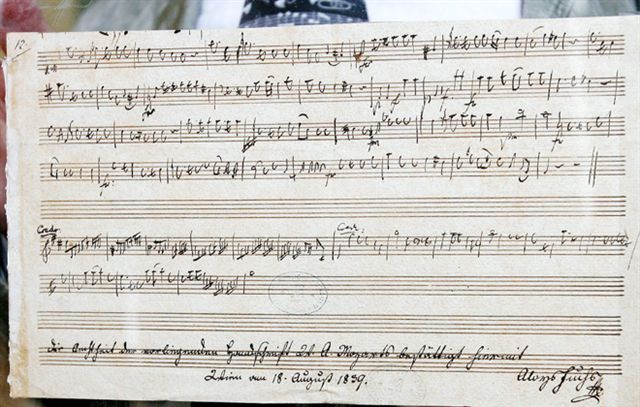 12.
Credo.
Die Aechtheit der vorliegenden Handschrift W. A. Mozarts bestättigt hiermit
Wien am 18. August 1839.
Aloys Fuchs